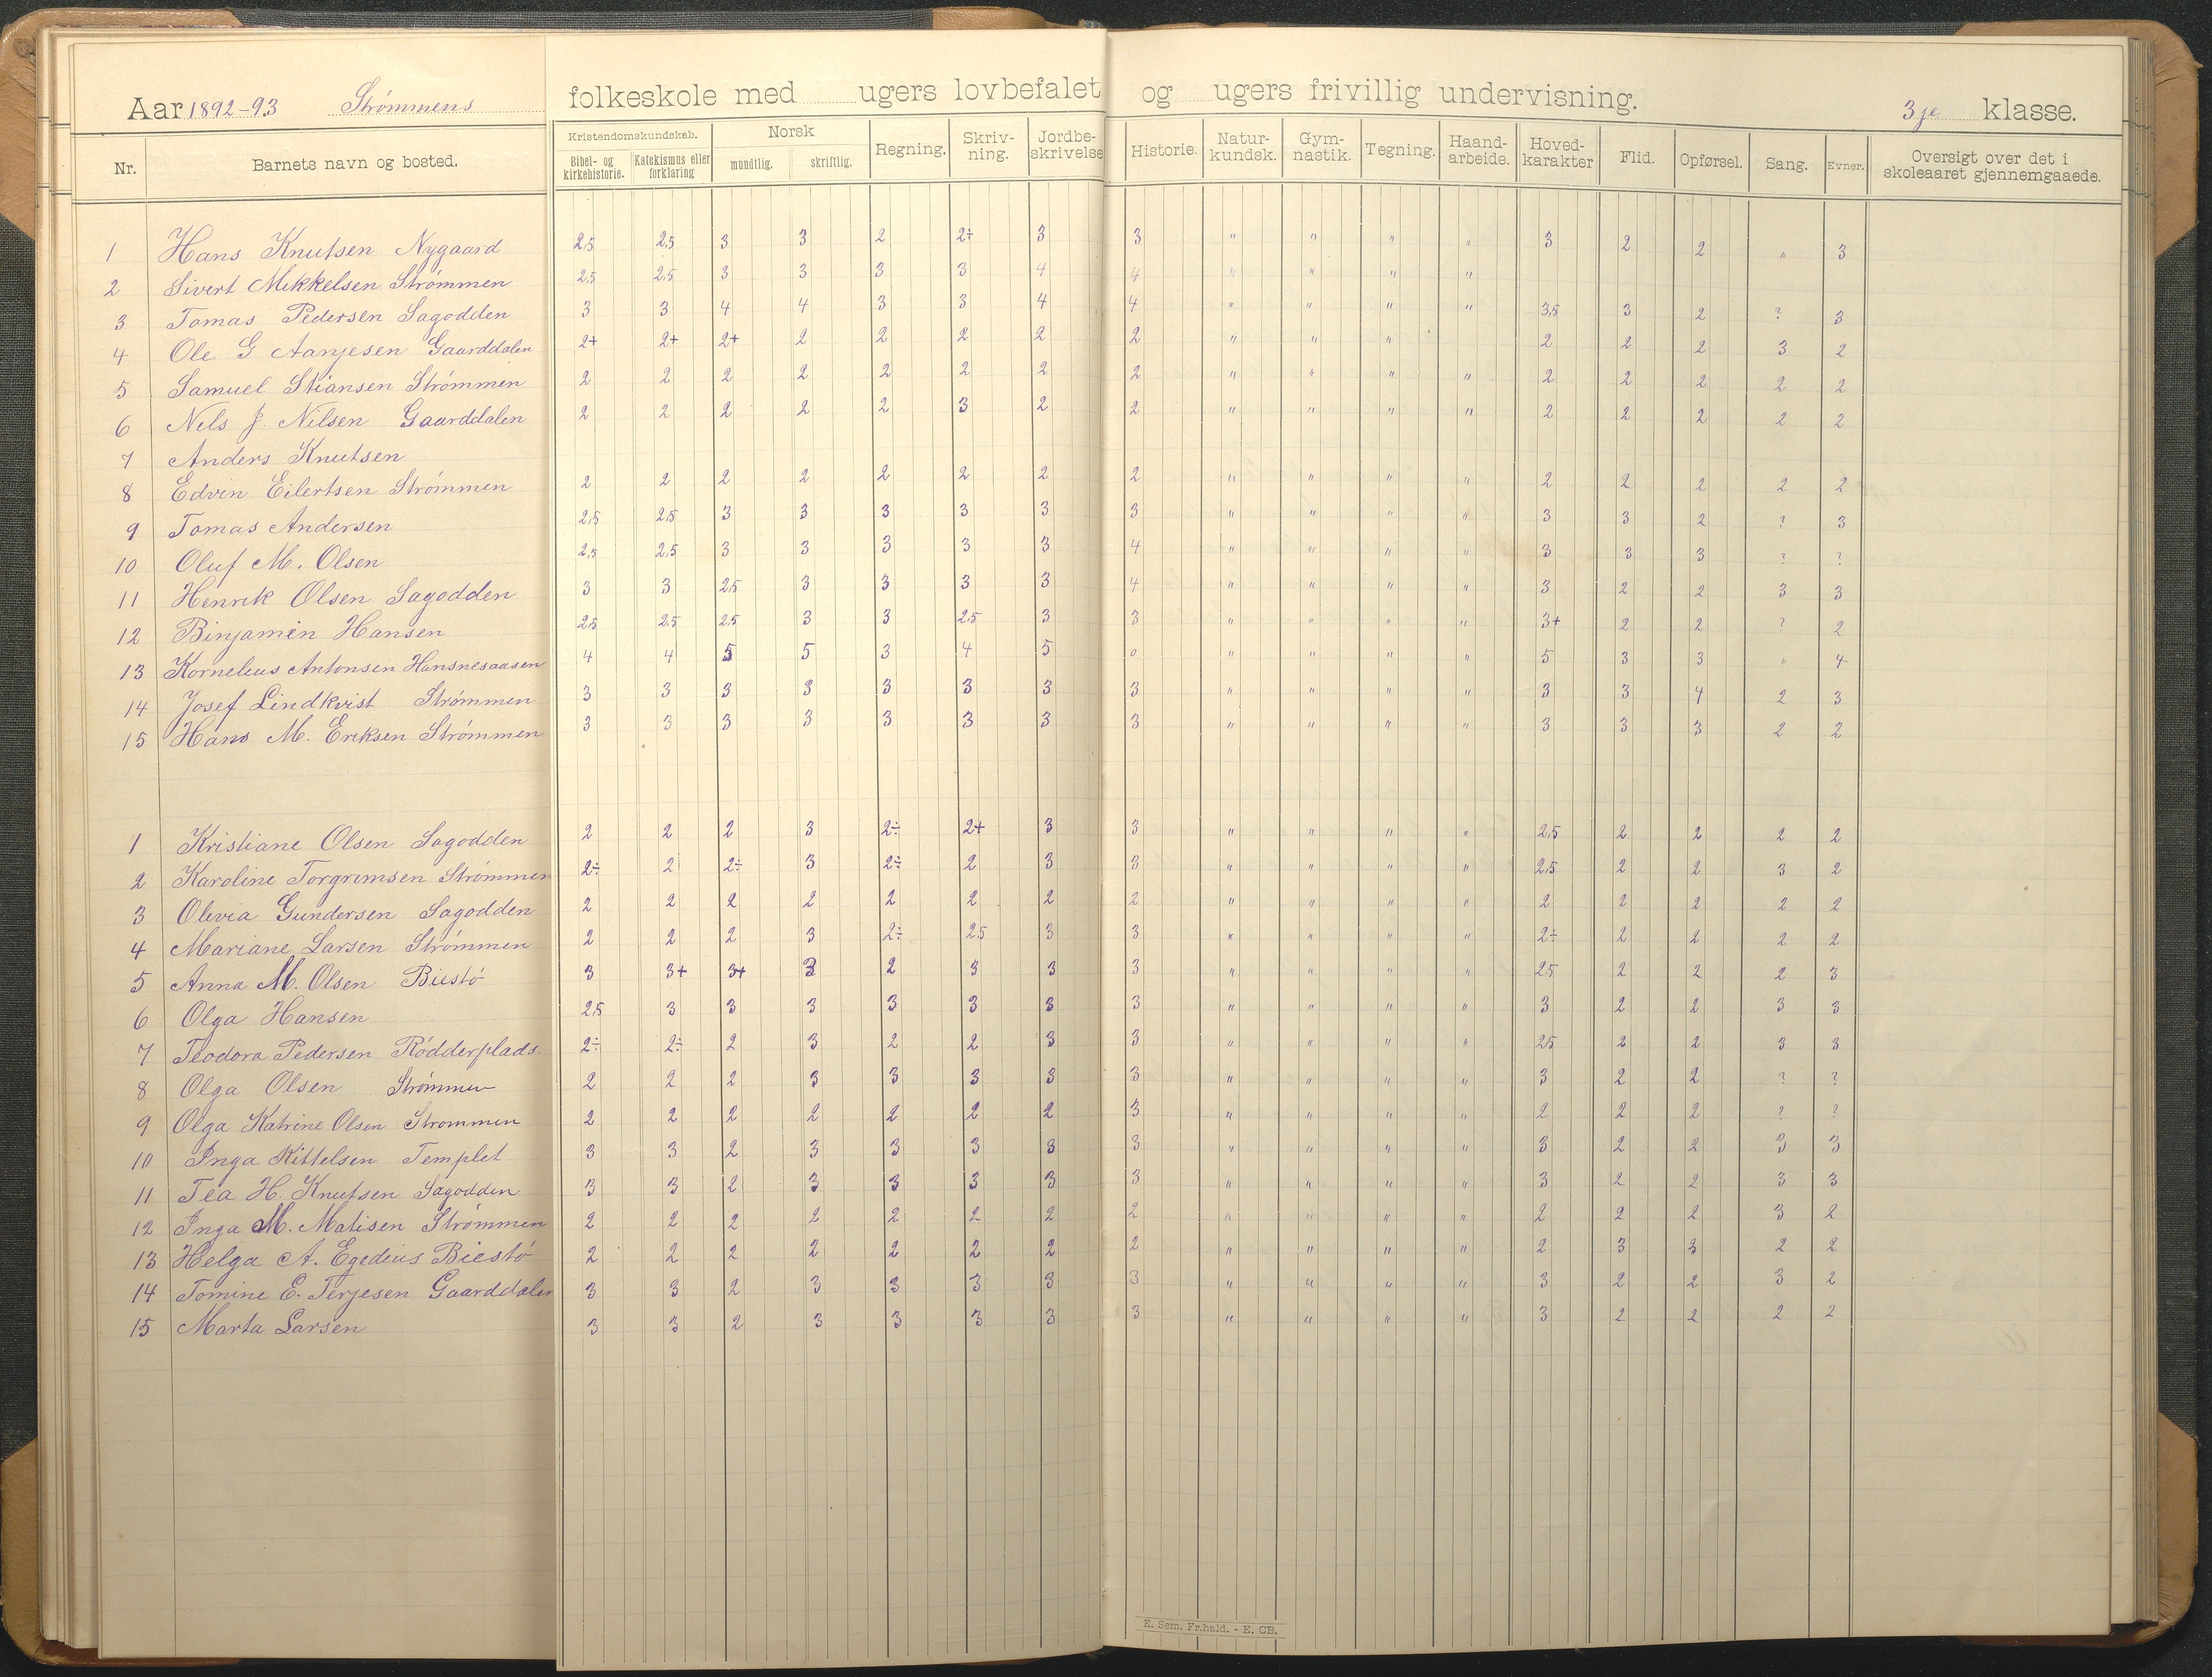 Aar 1892-93 Strømmens folkeskole med ugers lovbefalet og ugers frivillig undervisning. 3je klasse.
Nr. Barnets navn og bosted. Kristendomskundskab. Bibel- og kirkehistorie. Katekismus eller forklaring Norsk mundtlig. skriftlig. Regning. Skriv-ning. Jordbe-skrivelse Historie. Natur-kundsk. Gym-nastik. Tegning. Haand-arbeide. Hoved-karakter Flid. Opførsel. Sang. Evner. Oversigt over det i skoleaaret gjennemgaaede.
1 Hans Knutsen Nygaard 2,5 2,5 3 3 2 2÷ 3 3 " " " " 3 2 2 " 3
2 Sivert Mikkelsen Strømmen 2,5 2,5 3 3 3 3 4 4 " " " "
3 Tomas Pedersen Sagodden 3 3 4 4 3 3 4 4 " " " " 3,5 3 2 ? 3
4 Ole G Aanjesen Gaarddalen 2+ 2+ 2+ 2 2 2 2 2 " " " 2 2 2 3 2
5 Samuel Stiansen Strømmen 2 2 2 2 2 2 2 2 " " " " 2 2 2 2 2
6 Nels J. Nilsen Gaarddalen 2 2 2 2 2 3 2 2 " " " " 2 2 2 2 2
7 Anders Knutsen
8 Edvin Eilertsen Strømmen 2 2 2 2 2 2 2 2 " " " " 2 2 2 2 2
9 Tomas Andersen 2,5 2,5 3 3 3 3 3 3 " " " " 3 3 2 ? 3
10 Oluf M. Olsen 2,5 2,5 3 3 3 3 3 4 " " " " 3 3 3 ? ?
11 Henrik Olsen Sagodden 3 3 2,5 3 3 3 3 4 " " " " 3 2 2 3 3
12 Binjamin Hansen 2,5 2,5 2,5 3 3 2,5 3 3 " " " " 3+ 2 2 ? 2
13 Kornelius Antonsen Hansnesaasen 4 4 5 5 3 4 5 0 " " " " 5 3 3 " 4
14 Josef Lindkvist Strømmen 3 3 3 3 3 3 3 3 " " " " 3 3 4 2 3
15 Hans M. Eriksen Strømmen 3 3 3 3 3 3 3 3 " " " " 3 3 3 2 2
1 Kristiane Olsen Sagodden 2 2 2 3 2÷ 2+ 3 3 " " " " 2,5 2 2 2 2
2 Karoline Torgrimsen Strømmen 2÷ 2 2÷ 3 2÷ 2 3 3 " " " " 2,5 2 2 3 2
3 Olivia Gundersen Sagodden 2 2 2 2 2 2 2 2 " " " " 2 2 2 2 2
4 Mariane Larsen Strømmen 2 2 2 3 2÷ 2,5 3 3 " " " " 2÷ 2 2 2 2
5 Anna M. Olsen Biestø 3 3+ 3+ 3 2 3 3 3 " " " " 2,5 2 2 2 3
6 Olga Hansen 2,5 3 3 3 3 3 3 3 " " " " 3 2 2 3 3
7 Teodora Pedersen Rødderplads. 2÷ 2÷ 2 3 2 2 3 3 " " " " 2,5 2 2 3 3
8 Olga Olsen Strømmen 2 2 2 3 3 3 3 3 " " " " 3 2 2 ? ?
9 Olga Katrine Olsen Strømmen 2 2 2 2 2 2 2 3 " " " " 2 2 2 ? ?
10 Inga Kittelsen Templet 3 3 2 3 3 3 3 3 " " " " 3 2 2 3 3
11 Tea H. Knutsen Sagodden 3 3 2 3 3 3 3 3 " " " " 3 2 2 3 3
12 Inga M. Matisen Strømmen 2 2 2 2 2 2 2 2 " " " " 2 2 2 3 2
13 Helga A. Egedius Biestø 2 2 2 2 2 2 2 2 " " " " 2 3 3 2 2
14 Tomine E. Terjesen Gaarddalen 3 3 2 3 3 3 3 3 " " " " 3 2 2 3 2
15 Marta Larsen 3 3 2 3 3 3 3 3 " " " " 3 2 2 2 2
E. Sem. Fr.hald. - E. CB.